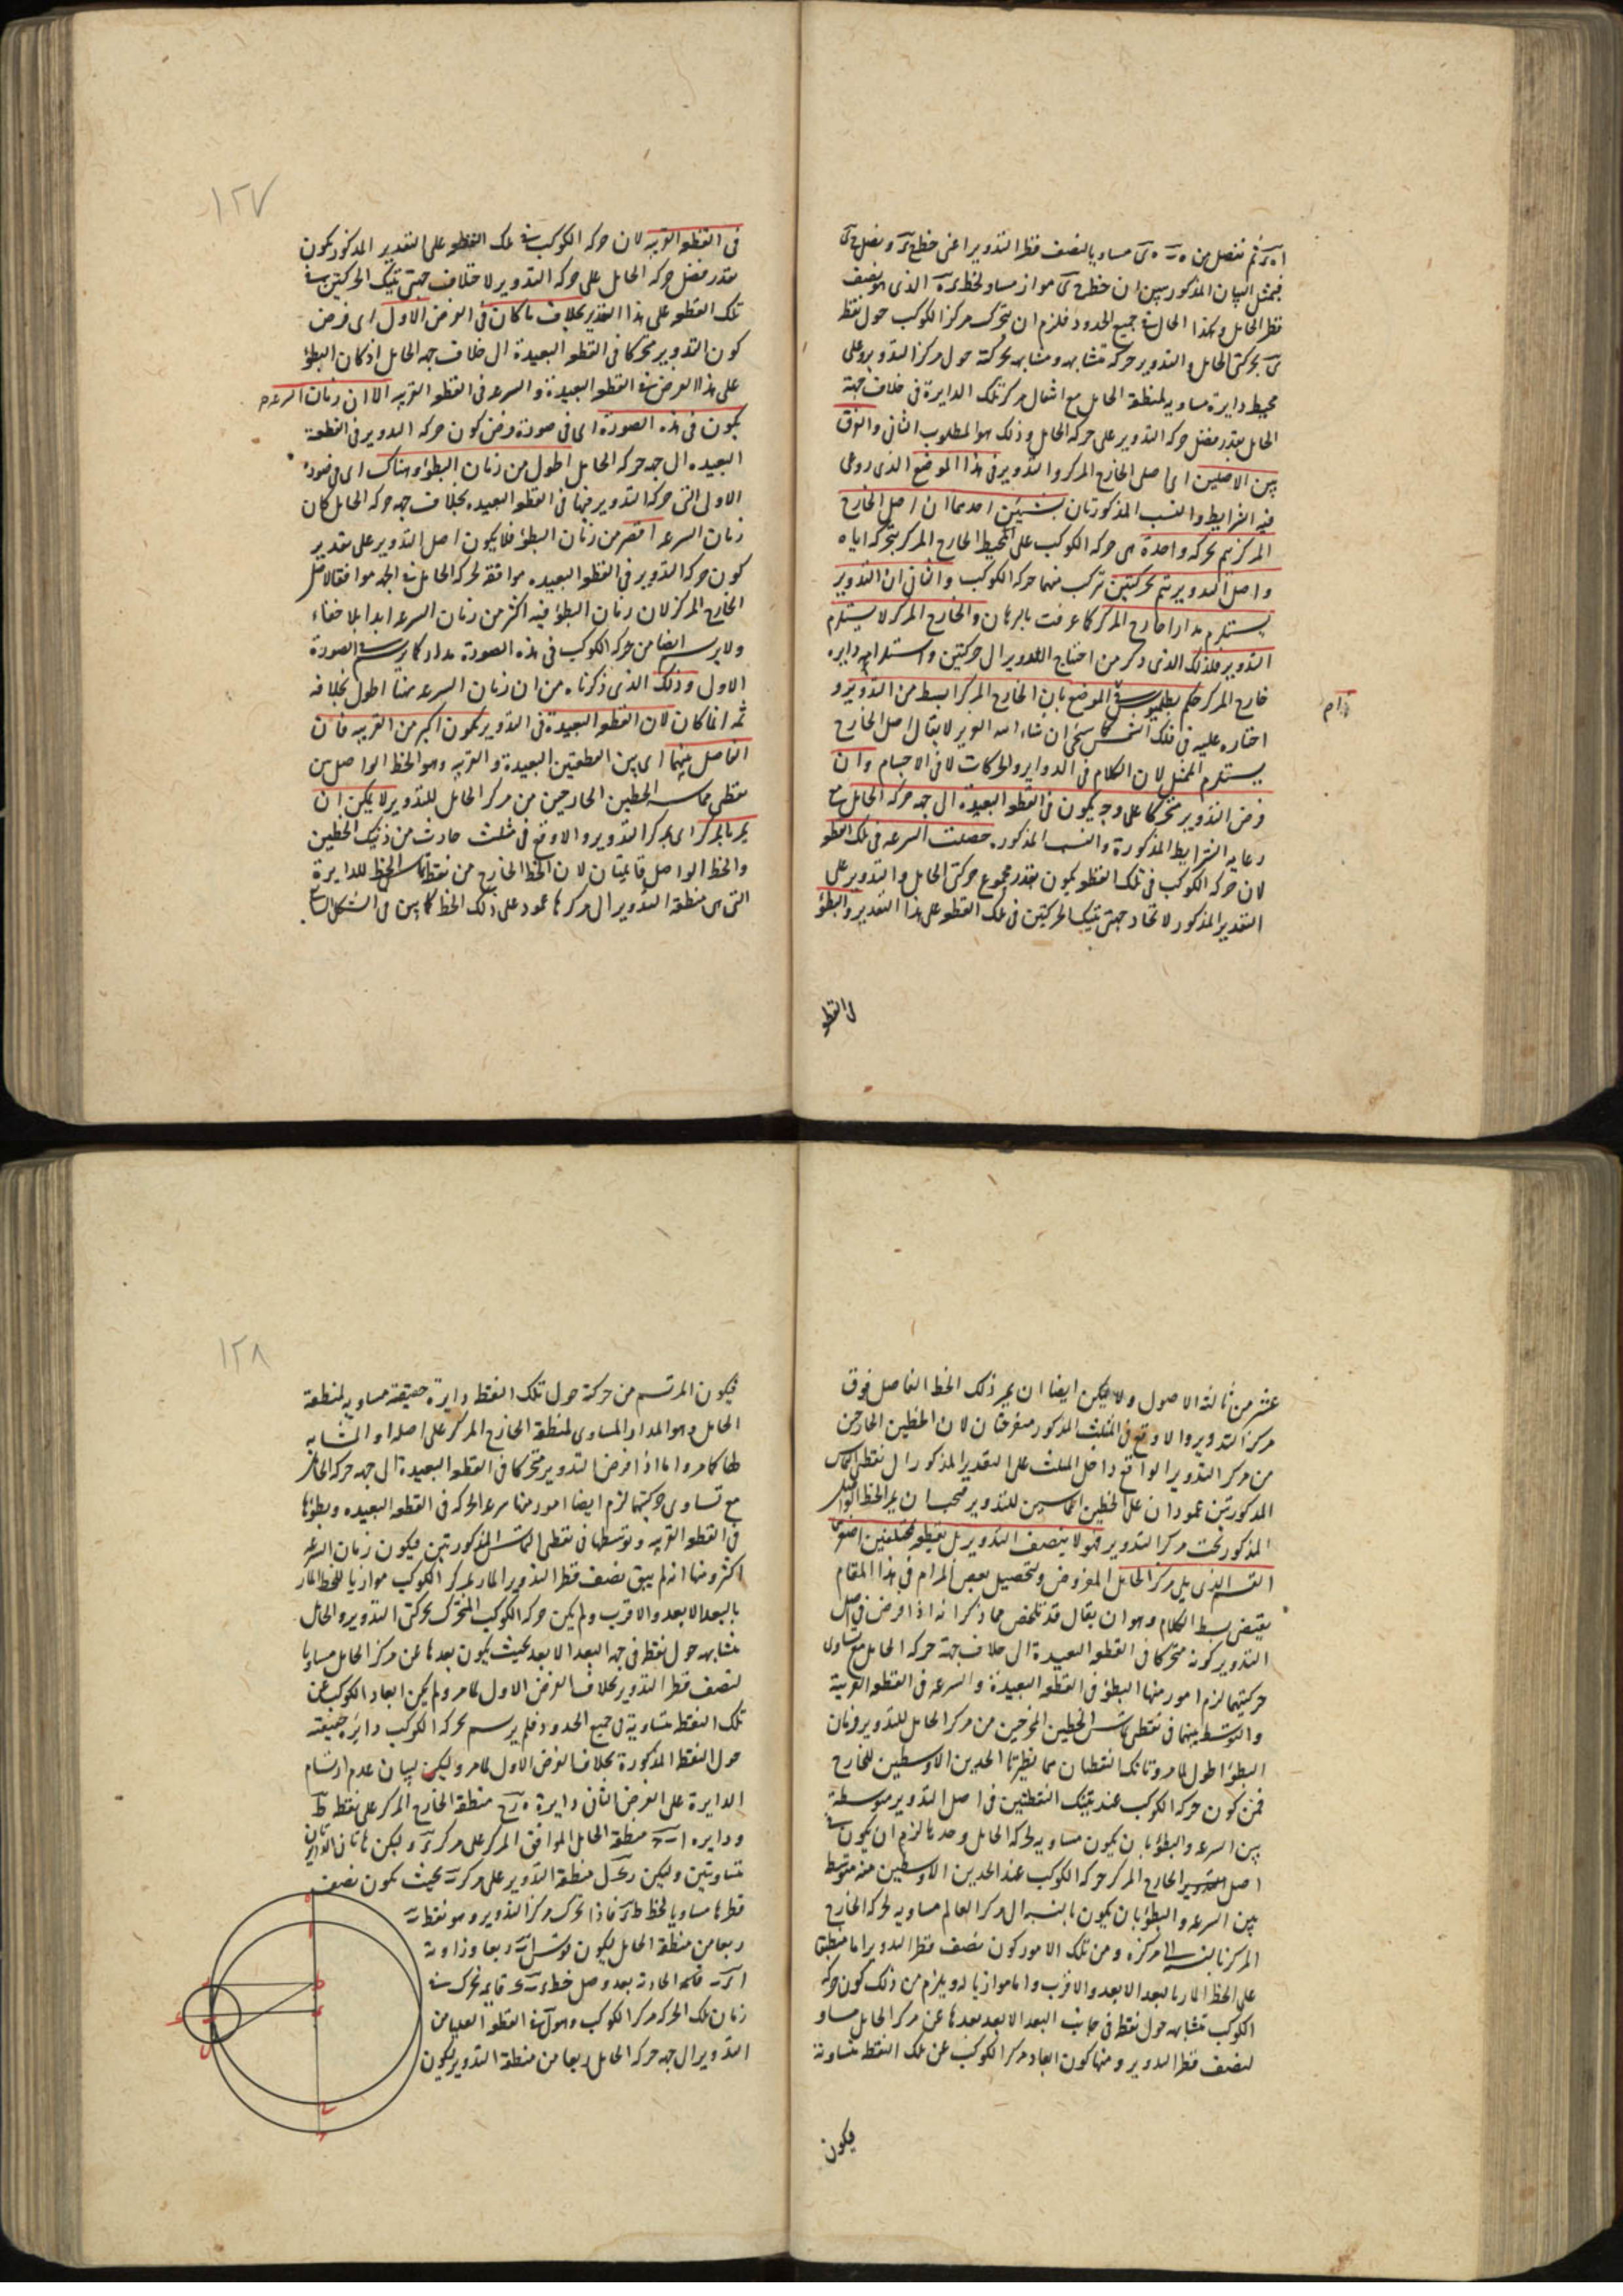 ثم نفصل من ه‍ مساويا لنصف قطر التدوير اعنى خط ونصل
فبمثل البيان المذكور يبين ان خط مواز مساو لخط الذى هو نصف
قطر الحامل وهكذا الحال فى جميع الحدود فلزم ان يتحرك مركز الكوكب حول نقطة
بحركتى الحامل والتدوير حركة متشابهة ومشابهة لحركته حول مركز التدوير وعلى
محيط دايرة مساوية لمنطقة الحامل مع انتقال مركز تلك الدايرة فى خلاف جهة
الحامل بقدر فضل حركة التدوير على حركة الحامل وذلك هو المطلوب الثانى والفرق
بين الاصلين اى اصلى الخارج المركز والتدوير فى هذا الموضع الذى روعى
فيه الشرايط والنسب المذكورتان بشيئين احدهما ان اصل الخارج
المركز يتم بحركة واحدة هى حركة الكوكب على المحيط الخارج المركز بتحركه اياه
واصل التدوير يتم بحركتين تركب منهما حركة الكوكب والثانى ان التدوير
يستلزم مدارا خارج المركز كما عرفت بالبرهان والخارج المركز لا يستلزم
التدوير فلذلك الذى ذكر من احتياج التدوير الى حركتين واستلزامه دايرة
خارج المركز حكم بطلميوس فى الموضع بان الخارج المركز ابسط من التدوير و
اختاره عليه فى فلك الشمس كما سيجئ ان شاء الله العزيز لا يقال اصل الخارج
يستلزم الممثل لان الكلام فى الدواير والحركات لا فى الاجسام وان
فرض التدوير متحركا على وجه يكون فى القطعة البعيدة الى جهة حركة الحامل مع
رعاية الشرايط المذكورة والنسب المذكور حصلت السرعة فى تلك القطعة
لان حركة الكوكب فى تلك القطعة يكون بقدر مجموع حركتى الحامل والتدوير على
التقدير المذكور لاتحاد جهتى تينك الحركتين فى تلك القطعة على هذا التقدير والبطؤ
فى القطعة
١٢٧
فى القطعة القريبة لان حركة الكوكب فى تلك القطعة على التقدير المذكور يكون
بقدر فضل حركة الحامل على حركة التدوير لاختلاف جهتى تينك الحركتين فى
تلك القطعة على هذا التقدير بخلاف ما كان فى الفرض الاول اى فرض
كون التدوير متحركا فى القطعة البعيدة الى خلاف جهة الحامل اذ كان البطؤ
على هذا الفرض فى القطعة البعيدة والسرعة فى القطعة القريبة الا ان زمان السرعة
يكون فى هذه الصورة اى فى صورة فرض كون حركة التدوير فى القطعة
البعيدة الى جهة حركة الحامل اطول من زمان البطؤ وهناك اى فى صورة
الاولى التى حركة التدوير فيها فى القطعة البعيدة بخلاف جهة حركة الحامل كان
زمان السرعة اقصر من زمان البطؤ فلا يكون اصل التدوير على تقدير
كون حركة التدوير فى القطعة البعيدة موافقة لحركة الحامل فى الجهة موافقا لاصل
الخارج المركز لان زمان البطؤ فيه اكثر من زمان السرعة ابدا بلا خفاء
ولا يرسم ايضا من حركة الكوكب فى هذه الصورة مدار كما يرسم فى الصورة
الاولى وذلك الذى ذكرناه من ان زمان السرعة هنا اطول بخلافه
ثمه انما كان لان القطعة البعيدة فى التدوير يكون اكبر من القريبة فان
الفاصل بينهما اى بين القطعتين البعيدة والقريبة وهو الخط الواصل بين
نقطتى مماسة الخطين الخارجين من مركز الحامل للتدوير لا يمكن ان
يمر بالمركز اى بمركز التدوير والا وقع فى مثلث حادث من ذينك الخطين
والخط الواصل قايمتان لان الخط الخارج من نقطة تماس الخط للدايرة
التى هى منطقة التدوير الى مركزها عمود على ذلك الخط كما بين فى الشكل السابع
عشر من ثالثة الاصول ولا يمكن ايضا ان يمر ذلك الخط الفاصل فوق
مركز التدوير والا وقع فى المثلث المذكور منفرجتان لان الخطين الخارجين
من مركز التدوير الواقع داخل المثلث على التقدير المذكور الى نقطتى التماس
المذكورتين عمودان على الخطين المماسين للتدوير فيجب ان يمر الخط الواصل
المذكور تحت مركز التدوير فهو لا ينصف التدوير بل يقطعه بمختلفين اصغرهما
القسم الذى يلى مركز الحامل المفروض وتحصيل بعض المرام فى هذا المقام
يقتضى بسط الكلام وهو ان يقال قد تلخص مما ذكر انه اذا فرض فى اصل
التدوير كونه متحركا فى القطعة البعيدة الى خلاف جهة حركة الحامل مع تساوى
حركتيهما لزم امور منها البطؤ فى القطعة البعيدة والسرعة فى القطعة القريبة
والتوسط بينهما فى نقطتى تماس الخطين المخرجين من مركز الحامل للتدوير فزمان
البطؤ اطول كما مر وتانك النقطتان هما نظيرتا الحدين الاوسطين للخارج
فمن كون حركة الكوكب عند تينك النقطتين فى اصل التدوير متوسطة
بين السرعة والبطؤ بان يكون مساوية لحركة الحامل وحدها لزم ان يكون فى
اصل الخارج المركز حركة الكوكب عند الحدين الاوسطين منه متوسطة
بين السرعة والبطؤ بان يكون بالنسبة الى مركز العالم مساوية لحركة الخارج
المركز بالنسبة الى مركزه ومن تلك الامور كون نصف قطر التدوير اما منطبقا
على الخط المار بالبعد الابعد والاقرب واما موازيا له ويلزم من ذلك كون حركة
الكوكب متشابهة حول نقطة فى جانب البعد الابعد بعدها عن مركز الحامل مساو
لنصف قطر التدوير ومنها كون ابعاد مركز الكوكب عن تلك النقطة متساوية
فيكون
١٢٨
فيكون المرتسم من حركته حول تلك النقطة دايرة حقيقية مساوية لمنطقة
الحامل وهو المدار المساوى لمنطقة الخارج المركز على اصله او المشابه
لها كما مر واما اذا فرض التدوير متحركا فى القطعة البعيدة الى جهة حركة الحامل
مع تساوى حركتيهما لزم ايضا امور منها سرعة الحركة فى القطعة البعيدة وبطؤها
فى القطعة القريبة وتوسطها فى نقطتى التماس المذكورتين فيكون زمان السرعة
اكثر ومنها انه لم يبق نصف قطر التدوير المار بمركز الكوكب موازيا للخط المار
بالبعد الابعد والاقرب ولم يكن حركة الكوكب المتحرك بحركتى التدوير والحامل
متشابهة حول نقطة فى جهة البعد الابعد بحيث يكون بعدها عن مركز الحامل مساويا
لنصف قطر التدوير بخلاف الفرض الاول كما مر ولم يكن ابعاد الكوكب عن
تلك النقطة متساوية فى جميع الحدود فلم يرسم بحركة الكوكب دايرة حقيقية
حول النقطة المذكورة بخلاف الفرض الاول كما مر وليكن لبيان عدم ارتسام
الدايرة على الفرض الثانى دايرة منطقة الخارج المركز على نقطة ط
ودايرة منطقة الحامل الموافق المركز على مركز وليكن هاتان الدايرتان
متساويتين وليكن منطقة التدوير على مركز بحيث يكون نصف
قطرها مساويا لخط فاذا تحرك مركز التدوير وهو نقطة
ربعا من منطقة الحامل ليكون قوس ربعا وزاوية
الحادثة بعد وصل خط قايمة تحرك فى
زمان تلك الحركة مركز الكوكب وهو فى القطعة العليا من
التدوير الى جهة حركة الحامل ربعا من منطقة التدوير ليكون